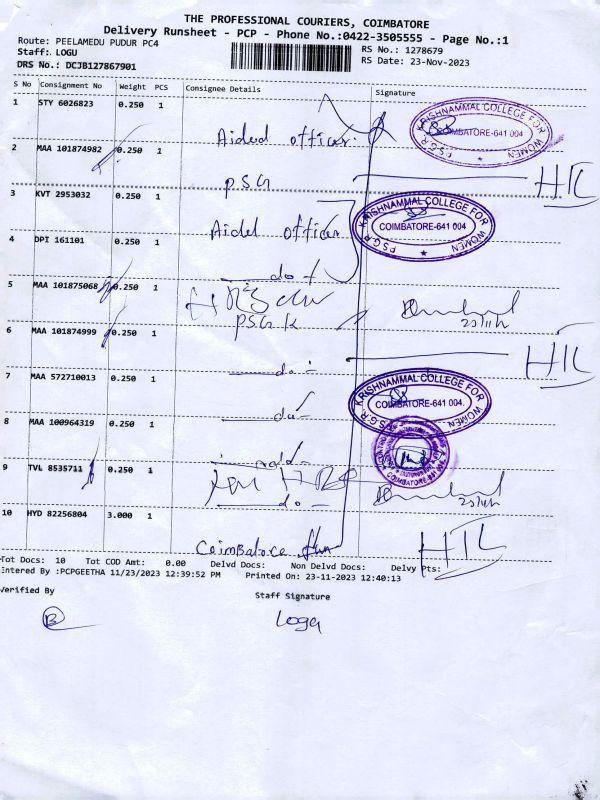 THE PROFESSIONAL COURIERS, COIMBATORE
Delivery Runsheet - PCP - Phone No.:0422-3505555 - Page No.:1
Route: PEELAMEDU PUDUR PC4
Staff: LOGU
DRS No.: DCJB127867901
RS No.: 1278679
RS Date: 23-Nov-2023
S No Consignment No Weight PCS Consignee Details Signature
1 STY 6026823 0.250 1 Aided officer.
P.S.G.R. KRISHNAMMAL COLLEGE FOR WOMEN
COIMBATORE-641 004
2 MAA 101874982 0.250 1 PSG
3 KVT 2953032 0.250 1 Aided officer
P.S.G.R. KRISHNAMMAL COLLEGE FOR WOMEN
COIMBATORE-641 004
4 DPI 161101 0.250 1 do
5 MAA 101875068 0.250 1 PSGR
23/11/
6 MAA 101874999 0.250 1 do
7 MAA 572710013 0.250 1 do
P.S.G.R. KRISHNAMMAL COLLEGE FOR WOMEN
COIMBATORE-641 004.
8 MAA 100964319 0.250 1
COIMBATORE
9 TVL 8535711 0.250 1 do
23/11/
10 HYD 82256804 3.000 1 Coimbatore
Tot Docs: 10 Tot COD Amt: 0.00 Delvd Docs: Non Delvd Docs: Delvy Pts:
Entered By :PCPGEETHA 11/23/2023 12:39:52 PM Printed On: 23-11-2023 12:40:13
Verified By
Staff Signature
B
Loga